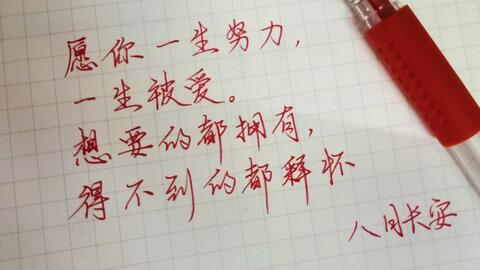 愿你一生努力，
一生被爱。
想要的都拥有，
得不到的都释怀
八月长安